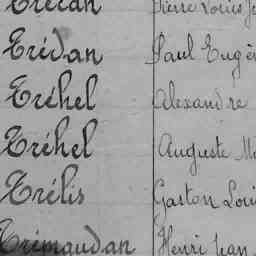 Pierre Louis
Trévan Paul Eugè
Tréhel Alexandre
Tréhel Auguste M
Trélis Gaston Loui
Trémaudan Henri Jean